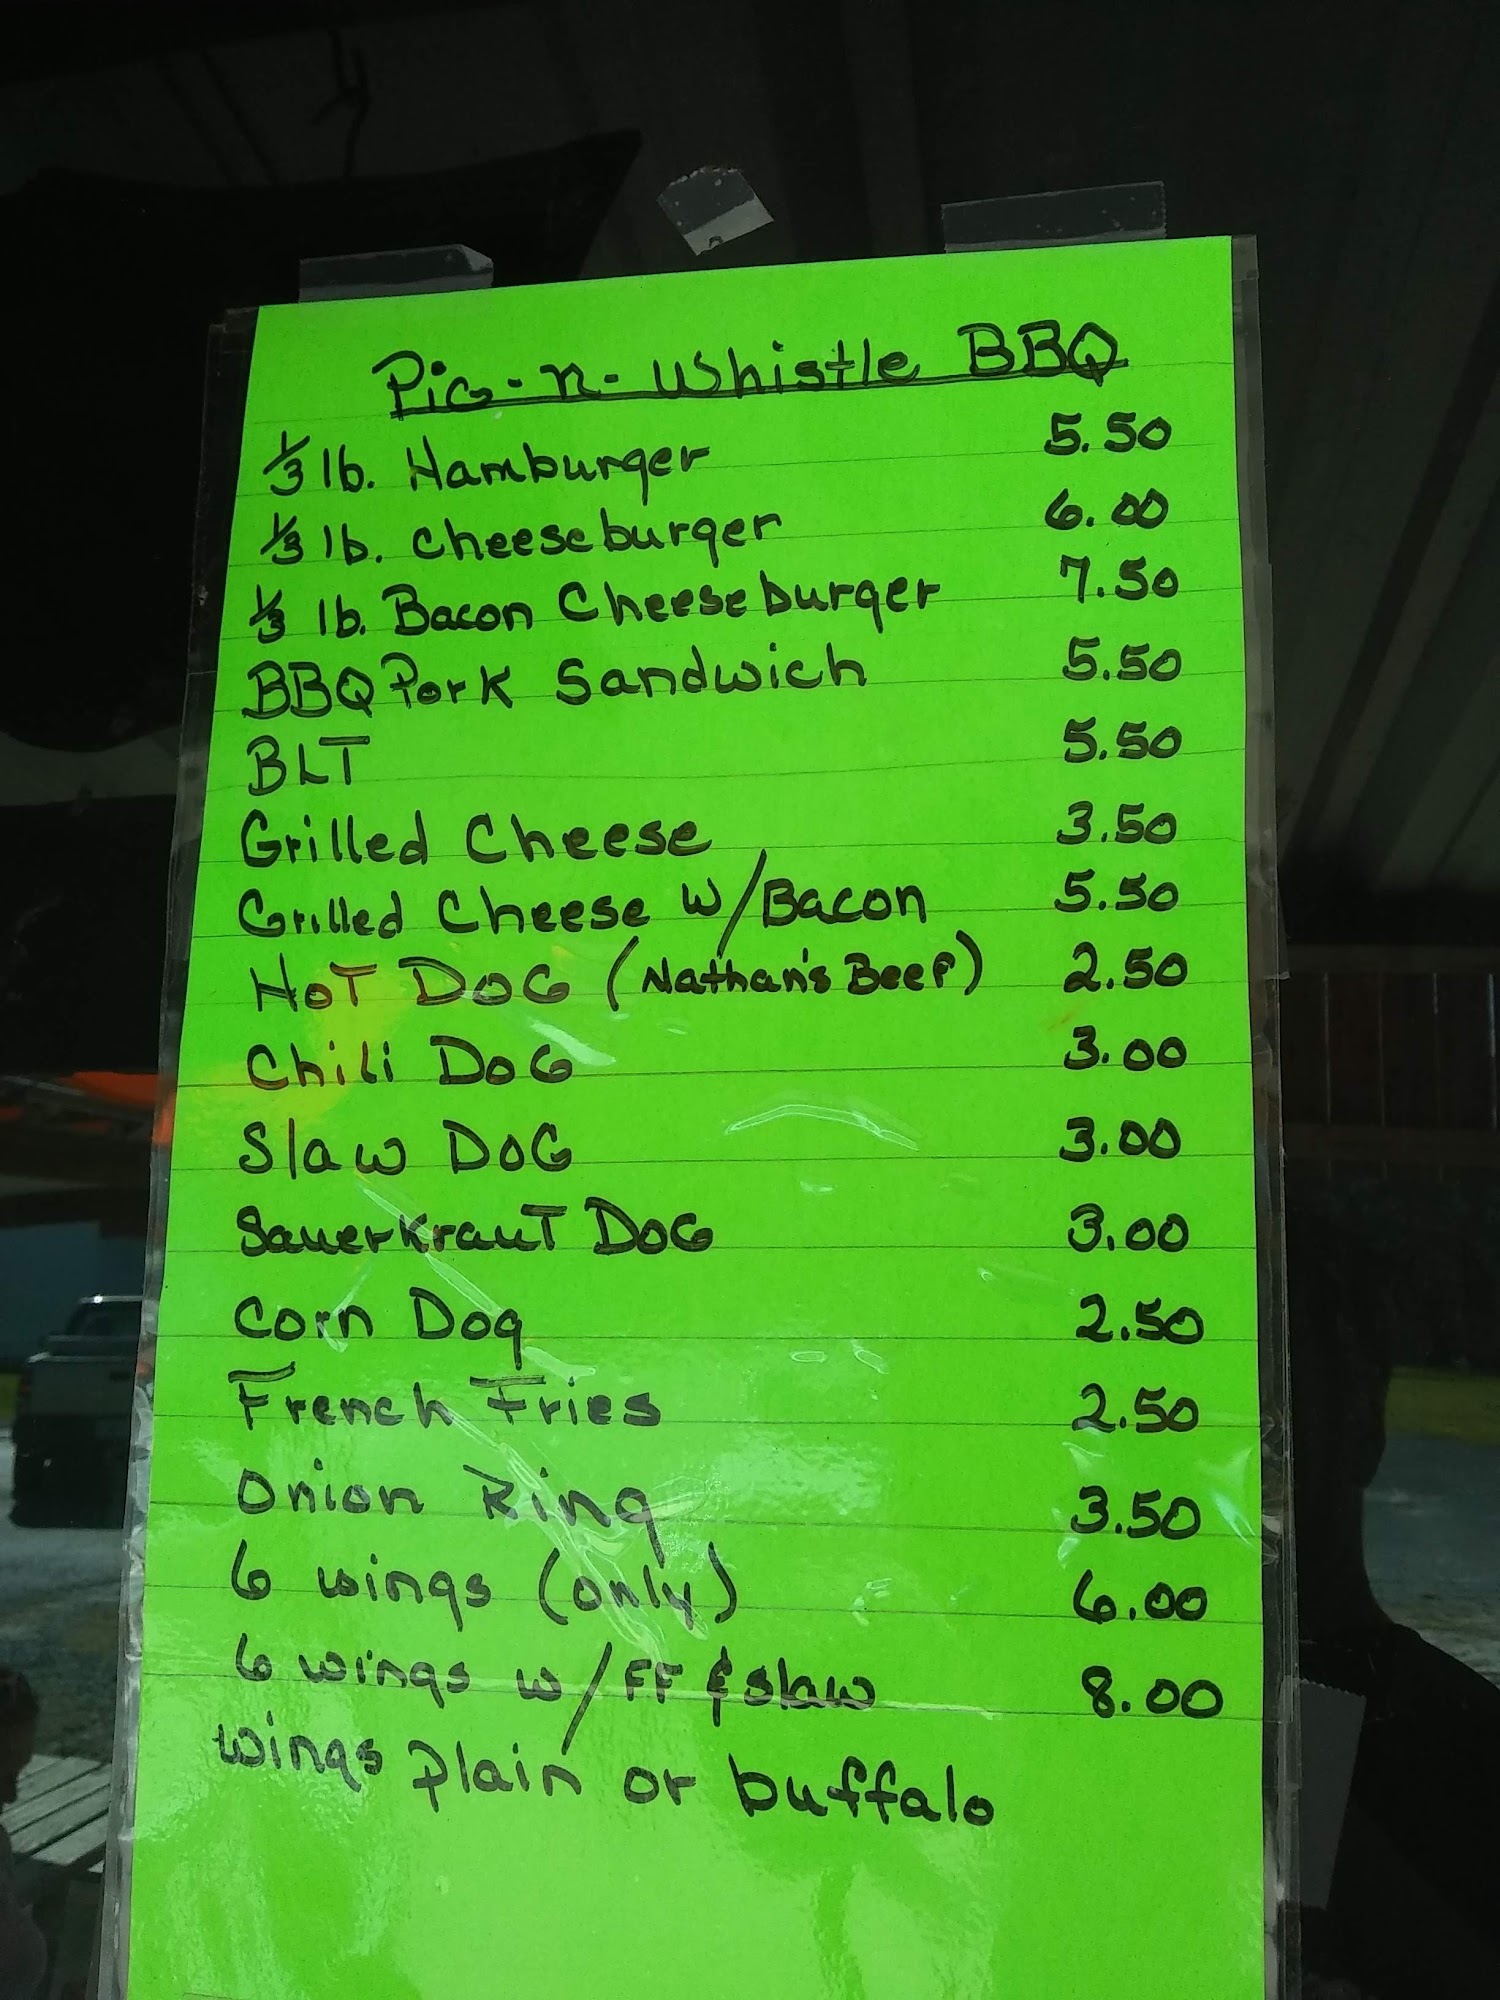 Pig-n-Whistle BBQ
1/3 lb. Hamburger 5.50
1/3 lb. cheeseburger 6.00
1/3 lb. Bacon Cheeseburger 7.50
BBQ Pork Sandwich 5.50
BLT 5.50
Grilled Cheese 3.50
Grilled Cheese w/Bacon 5.50
HOT DOG (Nathan's Beef) 2.50
Chili DOG 3.00
Slaw DOG 3.00
Sauerkraut DOG 3.00
Corn Dog 2.50
French Fries 2.50
Onion Ring 3.50
6 wings (only) 6.00
6 wings w/FF & slaw 8.00
wings plain or buffalo